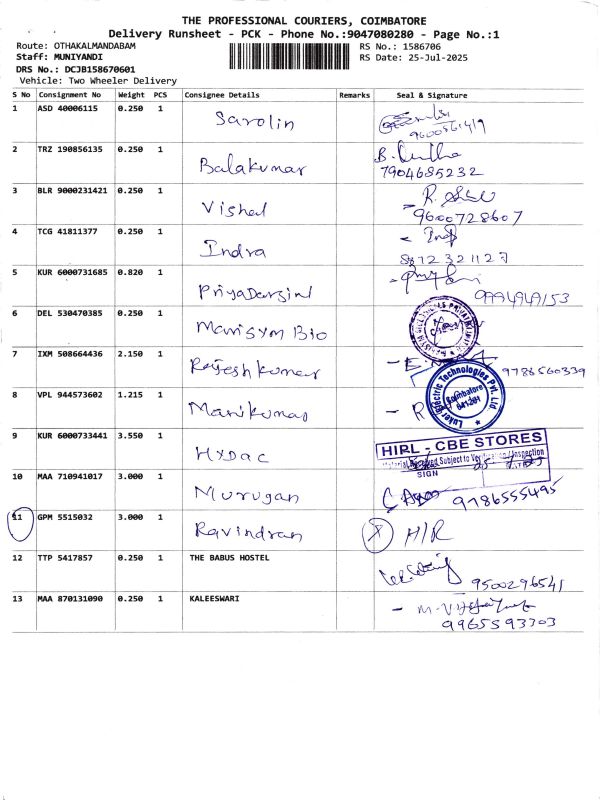 THE PROFESSIONAL COURIERS, COIMBATORE
Delivery Runsheet - PCK - Phone No.:9047080280 - Page No.:1
Route: OTHAKALMANDABAM RS No.: 1586706
Staff: MUNIYANDI RS Date: 25-Jul-2025
DRS No.: DCJB158670601
Vehicle: Two Wheeler Delivery
S No Consignment No Weight PCS Consignee Details Remarks Seal & Signature
1 ASD 40006115 0.250 1 Sarolin
9600561419
2 TRZ 190856135 0.250 1 Balakumar B.
7904685232
3 BLR 9000231421 0.250 1 Vishal R.
9600728607
4 TCG 41811377 0.250 1 Indra
8872321127
5 KUR 6000731685 0.820 1 PriyaDarsini
9994949153
6 DEL 530470385 0.250 1 Marisym Bio
7 IXM 508664436 2.150 1 Rajesh kumar
9786560339
8 VPL 944573602 1.215 1 Manikumar - R
Luker Electric Technologies Pvt. Ltd.
Coimbatore
641201
9 KUR 6000733441 3.550 1 Hydac
HIPL - CBE STORES
Material Received Subject to Verification / Inspection
SIGN
10 MAA 710941017 3.000 1 Murugan
9786555495
11 GPM 5515032 3.000 1 Ravindran X H/R
12 TTP 5417857 0.250 1 THE BABUS HOSTEL
9500296541
13 MAA 870131090 0.250 1 KALEESWARI - M.
9965593303